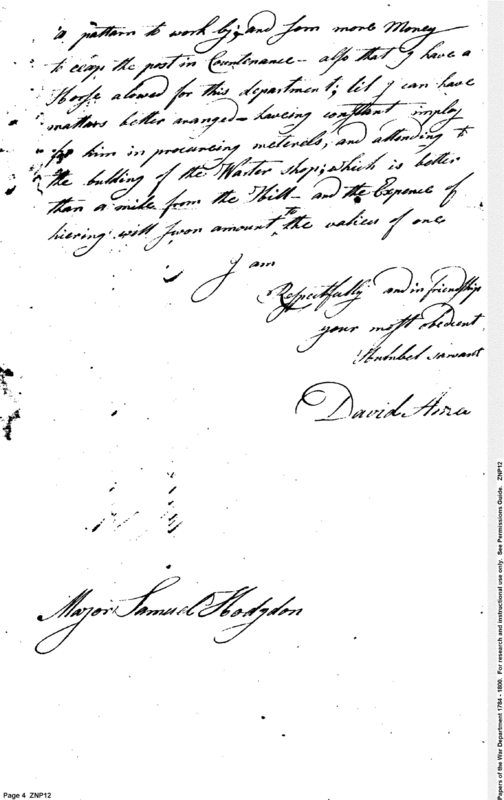 a pattarn to work by; and som more Money
to ceap the post in Countenance - also that I have a
Horse alowed for this department; til I can have
mattars better aranged - haveing constant imploy
for him in procureing meterels, and attending to
the bulding of the Warter shop; which is better
than a mile from the Hill - and the Expence of
hiering will soon amount to the valieu of one
I am
Respectfully and in friendship
your most obedient
Humbel sarvant
David
Major Samuel Hodgdon
Page 4 ZNP12
Papers of the War Department 1784 - 1800. For research and instructional use only. See Permissions Guide. ZNP12